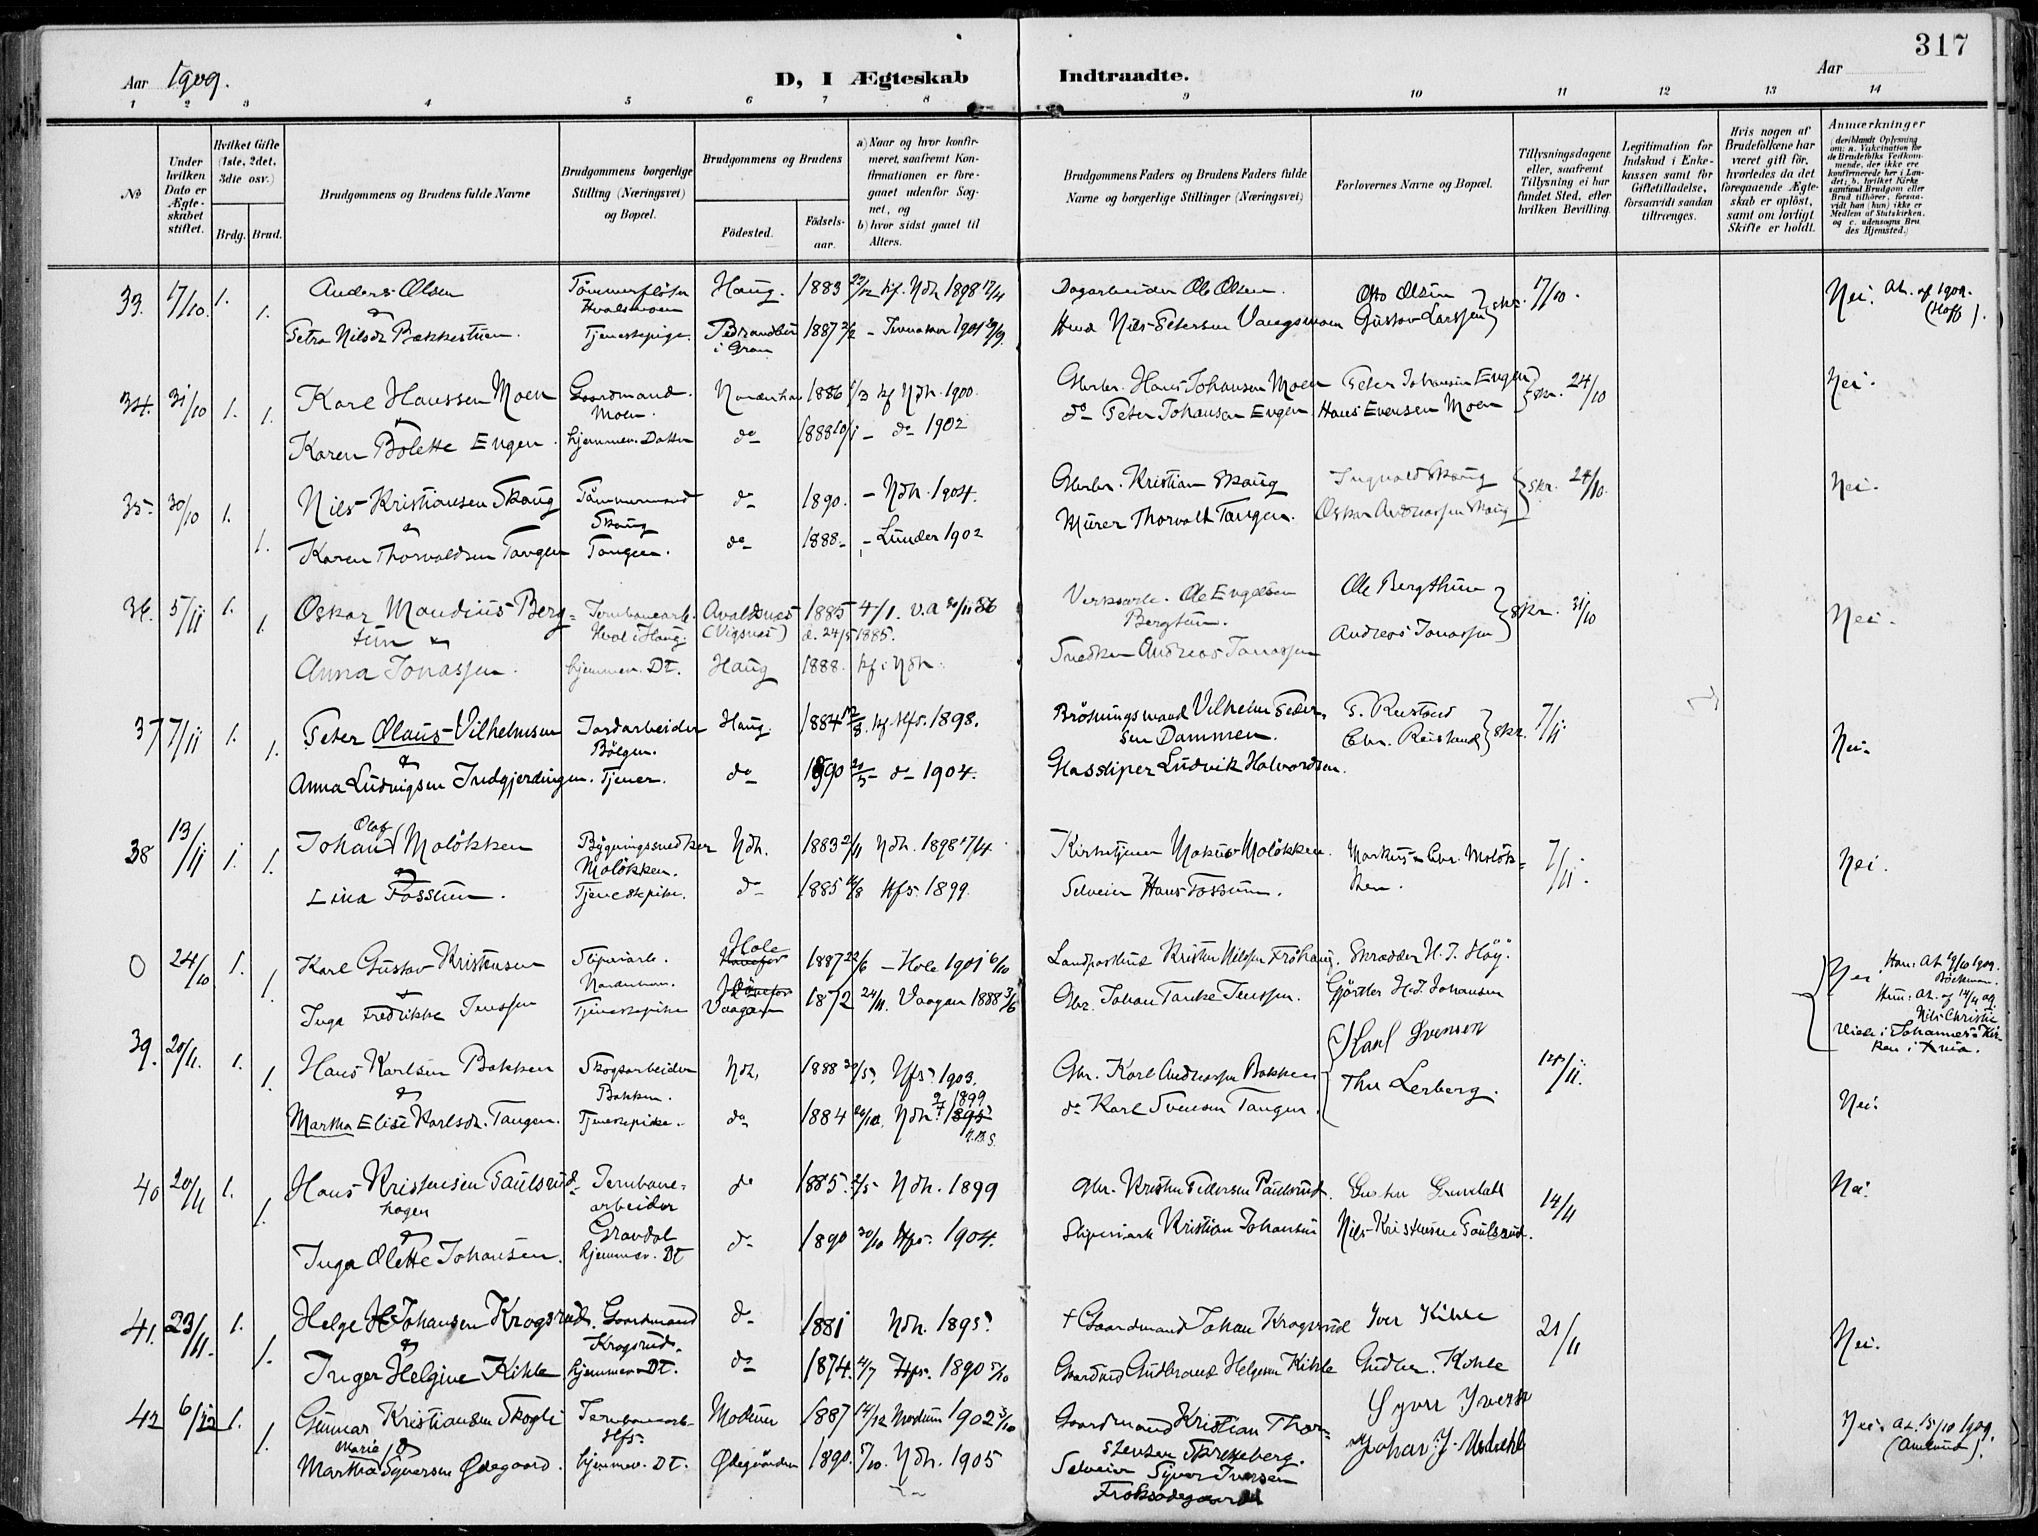 317
Aar 1909.
D, I Ægteskab Indtraadte.
Aar
1 2 3 4 5 6 7 8 9 10 11 12 13 14
No
Under hvilken Dato er Ægteskabet stiftet.
Hvilket Gifte (1ste, 2det, 3die osv.)
Brdg. Brud.
Brudgommens og Brudens fulde Navne
Brudgommens borgerlige Stilling (Næringsvei) og Bopæl.
Brudgommens og Brudens
Fødested.
Fødselsaar.
a) Naar og hvor konfirmeret, saafremt Konfirmationen er foregaaet udenfor Sognet, og
b) hvor sidst gaaet til Alters.
Brudgommens Faders og Brudens Faders fulde Navne og borgerlige Stillinger (Næringsvei)
Forlovernes Navne og Bopæl.
Tillysningsdagene eller, saafremt Tillysning ei har fundet Sted, efter hvilken Bevilling.
Legitimation for Indskud i Enkekassen samt for Giftetilladelse, forsaavidt saadan tiltrænges.
Hvis nogen af Brudefolkene har været gift før, hvorledes da det foregaaende Ægteskab er opløst, samt om lovligt Skifte er holdt.
Anmærkninger
(deriblandt Oplysning om: a. Vakcination for de Brudefolks Vedkommende, der ikke ere konfirmerede her i Landet; b. hvilket Kirkesamfund Brudgom eller Brud tilhører, forsaavidt han (hun) ikke er Medlem af Statskirken, og c. udensogns Brudes Hjemsted.)
33. 17/10. 1. Anders Olsen Tømmerfløter Haug. 1883 kf. Ndh 1898 17/4 Dagarbeider Ole Olsen. Otto Olsen skr. 7/10. Nei. At. af 1909. (Hoff).
& Hvalsmoen
1. Petra Nilsdr. Bækkestuen. Tjenestepige. Brandbu i Gran 1887 Jevnaker 1901 Nils Petersen Vangsmoen Gustav Larssen
34. 31/10 1. Karl Hanssen Moen Gaardmand. Norderhov 1886 kf Ndh. 1900. Gbrbr. Hans Johansen Moen Peter Johansen Engen skr. 24/10 Nei.
& Moen.
1. Karen Bolette Engen. hjemmev. Datter do 1888 – do 1902 do Peter Johansen Engen Hans Evensen Moen
35. 30/10 1. Nils Kristiansen Skaug Tømmermand do 1890. – Ndh. 1904. Gbrbr. Kristian Skaug Ingvald Skaug skr. 24/10. Nei.
& Skaug
1. Karen Thorvaldsen Tangen Tangen. do 1888 – Lunder 1902 Murer Thorvald Tangen. Oskar Andreassen Skaug
36. 5/11 1. Oskar Maudius Berg- Jernbanearb. Avaldsnes 1885 4/1. v.a 20/11 86 Verksarb. Ole Engelsen Ole Bergthun skr. 31/10 Nei.
1. tun & Hval i Haug. (Vigsnes) d. 24/5 1885. Bergtun.
Anna Jonassen. hjemmev. Dt. Haug 1888. kf. i Ndh. Snedker Andreas Jonassen Andreas Jonassen
37 7/11 1. Peter Olaus Vilhelmsen Jordarbeider Haug. 1884 kf. Hfs. 1898. Brøhningsmand Vilhelm Peder- P. Rustand skr. 7/11 Nei.
& Bølgen. sen Dammen. Chr. Rustand
1. Anna Ludvigsen Indgjerdingen. Tjener. do 1890 do 1904. Glassliper Ludvik Halvordsen.
38 13/11 1. Johan Olaf Moløkken Bygningssnedker Ndh. 1883 2/11 Ndh. 1898 17/4. Kirketjener Markus Moløkken. Markus & Chr. Moløk- 7/11. Nei.
& Moløkken. ken.
1. Lina Fossum. Tjenestepike. do 1885 Hfs. 1899. Selveier Hans Fossum.
0 24/10 1. Karl Gustav Kristensen Sliperiarb. Hole 1887 22/6 – Hole 1901 6/10 Landpostbud Kristen Nilssen Frøhaug. Skrædder H. J. Høy. Nei. Han: At. 1909.
& Norderhov.
1. Inga Fredrikke Jenssen Tjenestepike Vaagan 1872 24/11. Vaagan 1888 3/6 Gbr. Johan Tanke Jenssen. Gjørtler H. J. Johansen Hun: At. af 14/4 09. Nils Christie
Viede i Johannes Kirken i Kria.
39. 20/11. 1. Hans Karlsen Bakken Skogsarbeider Ndh, 1888 Hfs. 1903. Gbr. Karl Andreassen Bakken Karl Svensen 14/11. Nei.
& Bakken.
1. Martha Elise Karlsdr. Tangen. Tjenestepike. do 1884 Ndh. 1899 do Karl Svensen Tangen. Thv Lerberg.
40 20/11 1. Hans Kristensen Paulsrud- Jernbane- do 1885. 2/5 Ndh. 1899 Gbr. Kristen Pedersen Paulsrud. 14/11 Nei.
hagen arbeider
& Gravdal
1. Inga Olette Johansen. hjemmev. Dt do 1890 20/10 Hfs. 1904. Sliperiarb Kristian Johansen Nils Kristensen Paulsrud.
41. 23/11. 1. Helge H Johansen Krogsrud. Gaardmand do 1881 Ndh. 1895. † Gaardmand Johan Krogsrud Iver Kihle 21/11 Nei.
& Krogsrud.
1. Inger Helgine Kihle hjemmev. Dt. do 1874. 4/7 Hfs. 1890 5/10 Gaardmd Gudbrand Helgesen Kihle Gudbr. Kihle
42 6/12 1. Gunnar Kristiansen Skogli Jernbanearb. Modum 1887 14/12 Modum 1902 5/10 Gaardmand Kristian Thor- Syver Iversen Nei. At. 15/10 1909.
Marie & Hfs. stensen Skretteberg. Johan J.
1. Martha Syversen Ødegaard. hjemmev. Dt. 1890. 5/10. Ndh. 1905 Selveier Syver Iversen
Froksødegaard